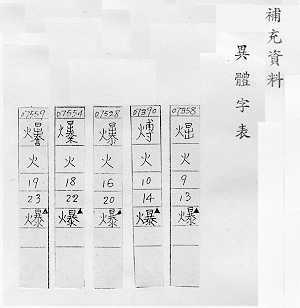 補充資料
異體字表
07358
火
9
13
爆
07390
煿
火
10
14
爆
07528
火
16
20
爆
07554
火
18
22
爆
07559
火
19
23
爆